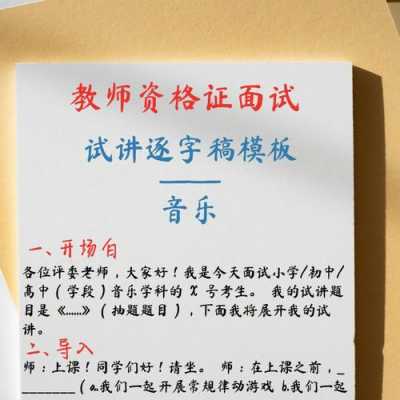 教师资格证面试
试讲逐字稿模板
音乐
一、开场白
各位评委老师，大家好！我是今天面试小学/初中/
高中（学段）音乐学科的 X 号考生。 我的试讲题
目是《……》（抽题题目），下面我将展开我的试
讲。
二、导入
师：上课！同学们好！请坐。 师：在上课之前，_
_______（a.我们一起开展常规律动游戏 b.我们一起